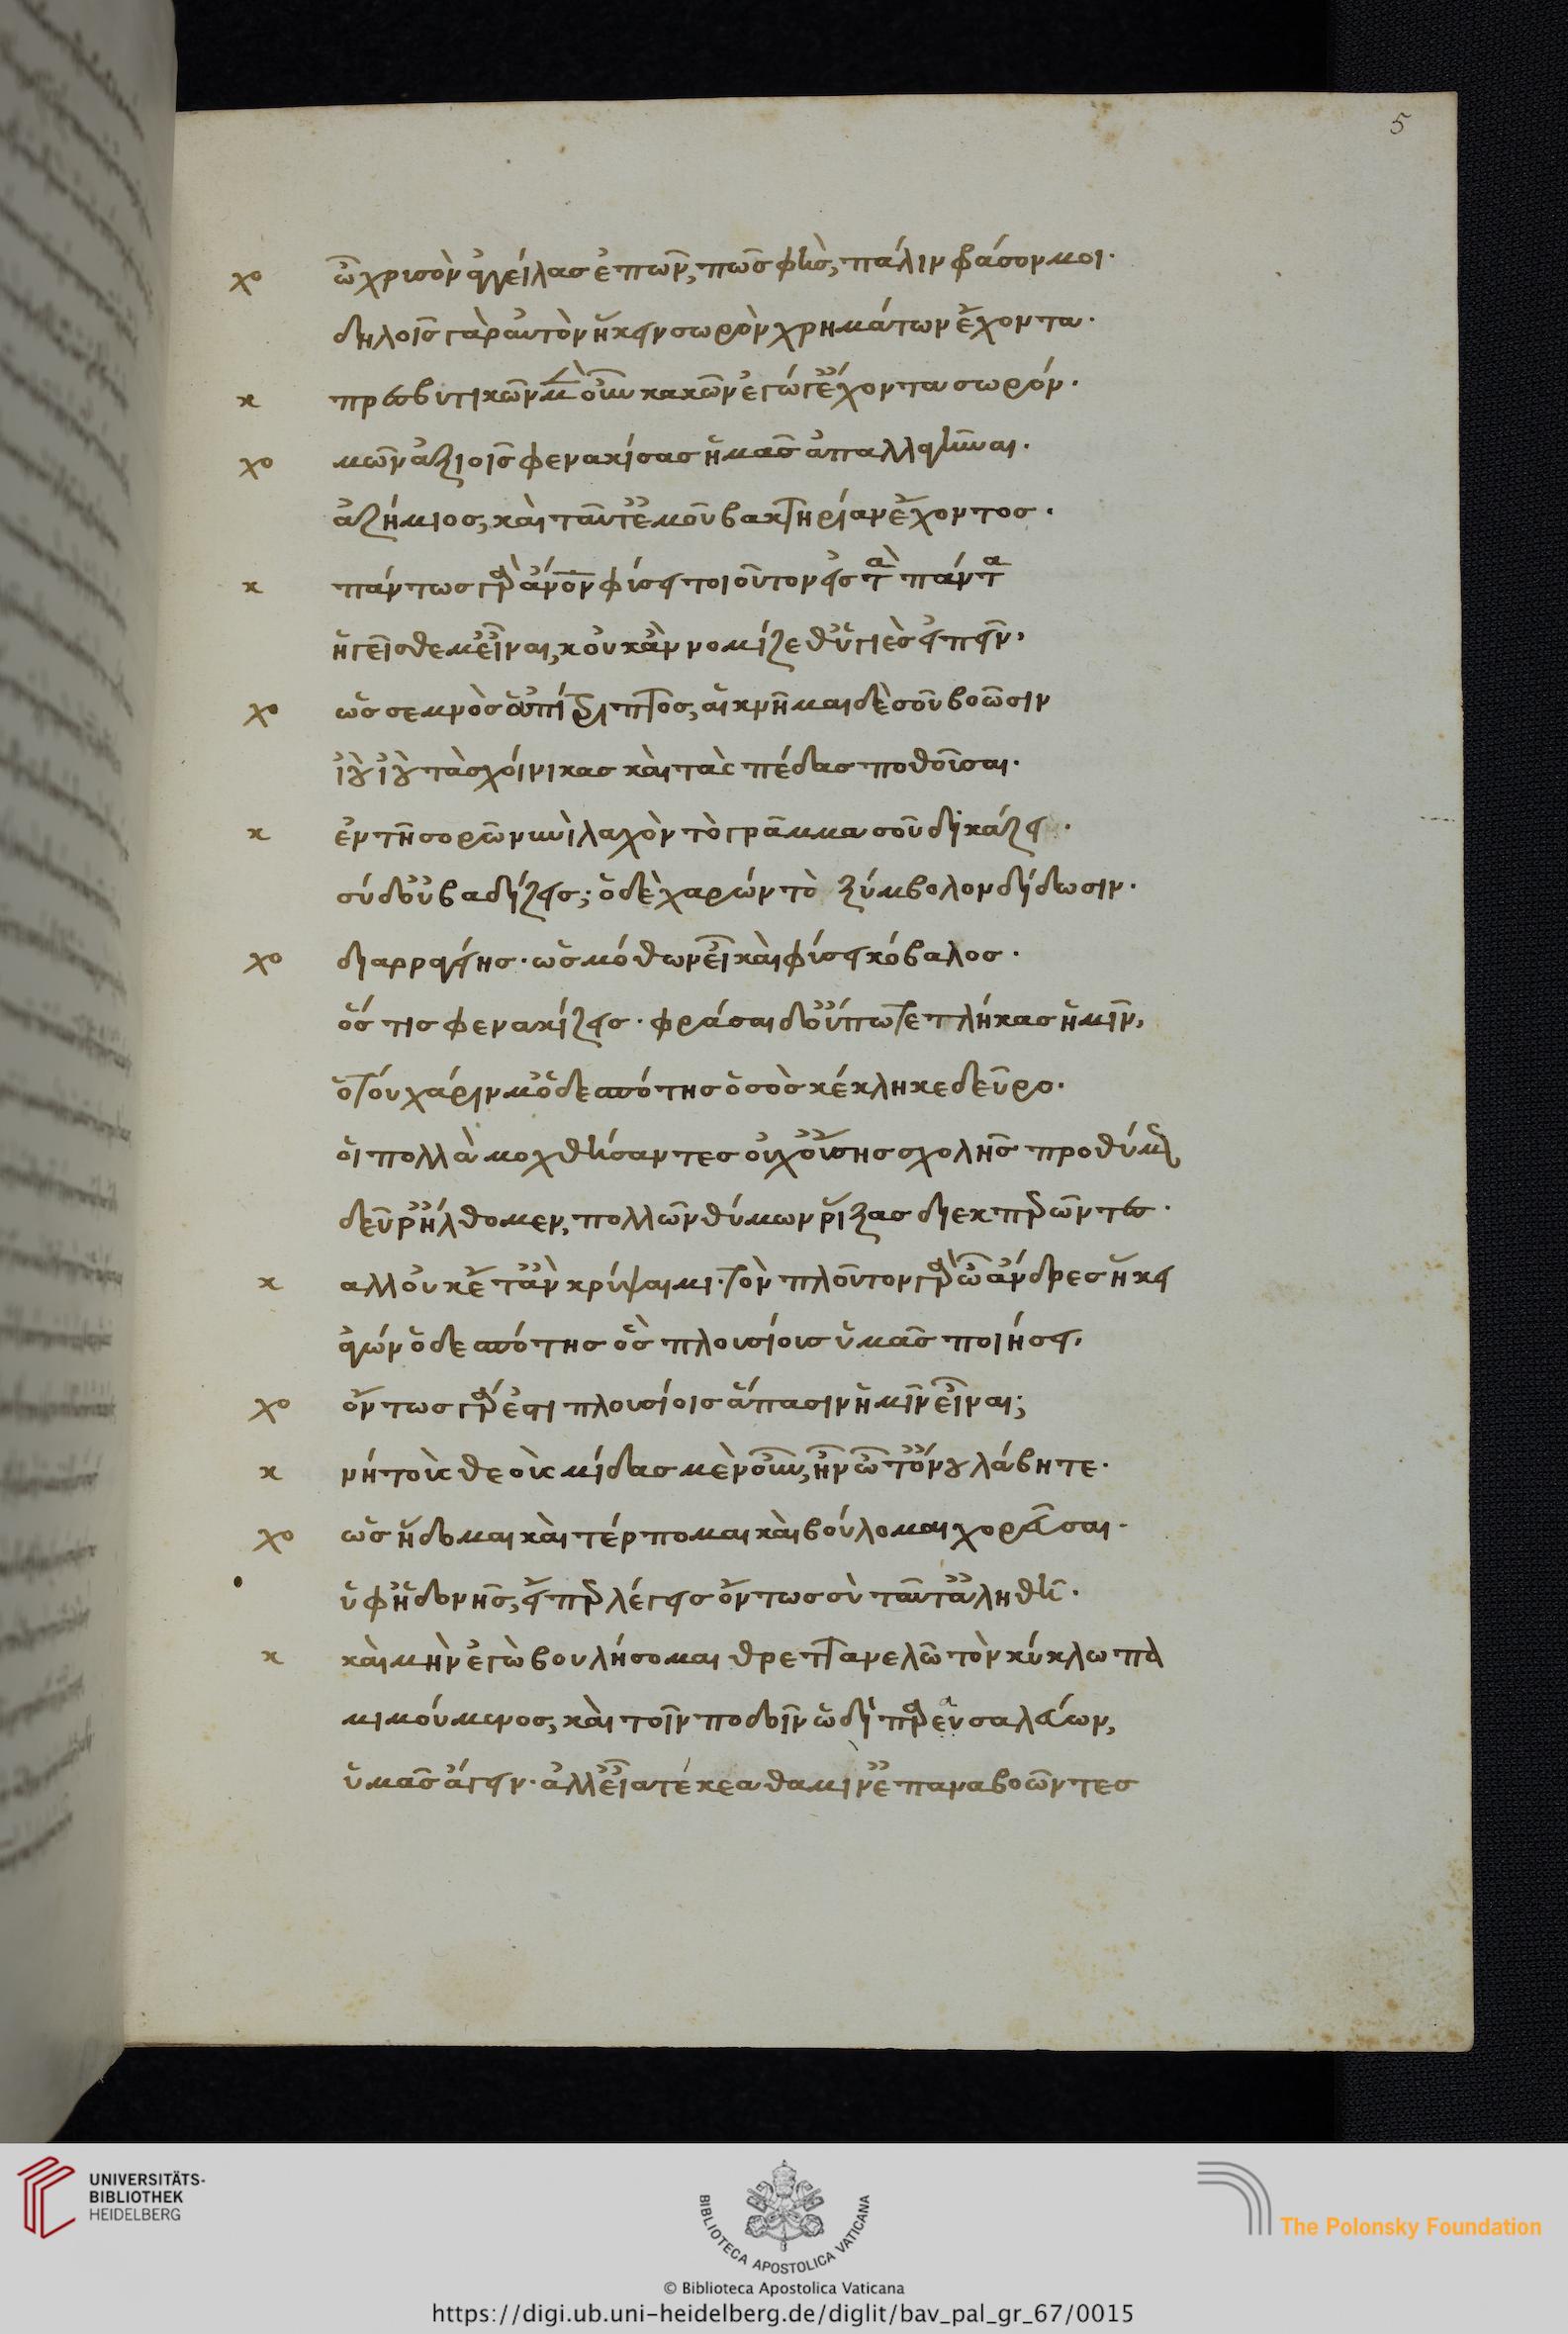 5
χο ὦ χρισὸν ἀγγείλας ἐπῶν, πῶς φὴς, πάλιν φάσον μοι.
δηλοῖς γὰρ αὐτὸν ἥκειν σωρὸν χρημάτων ἔχοντα.
κ πρεσβυτικῶν μὲν οὖν κακῶν ἐγώγ' ἔχοντα σωρόν.
χο μῶν ἀξιοῖς φενακίσας ἡμᾶς ἀπαλλαγῆναι.
ἀζήμιος, καὶ ταῦτ' ἐμοῦ βακτηρίαν ἔχοντος.
κ πάντως γὰρ ἄνον φύσει τοιοῦτον εἰς τὰ πάντα
ἡγεῖσθε μ' εἶναι, κοὐκ ἂν νομίζεθ' ὑγιὲς εἰπεῖν,
χο ὡς σεμνὸς ὁ ὑπίτριπτος, αἱ κνῆμαι δὲ σοῦ βοῶσιν
ἰοὺ ἰοὺ τὰς χοίνικας καὶ τὰς πέδας ποθοῦσαι.
κ ἐν τῇ σορῷ νυνὶ λαχὸν τὸ γράμμα σοῦ δικάζει.
σύ δ' οὐ βαδίζεις; ὁ δὲ χαρών τὸ ξύμβολον δίδωσιν.
χο διαρραγείης. ὡς μόθων εἶ καὶ φύσει κόβαλος.
ὅστις φενακίζεις. φράσαι δ' οὔπω τετλήκας ἡμῖν,
ὅτου χάριν μ' ὁ δεσπότης ὁ σὸς κέκληκε δεῦρο.
οἱ πολλὰ μοχθήσαντες οὐκ οὔσης σχολῆς προθύμως
δεῦρ' ἤλθομεν, πολλῶν θύμων ῥίζας διεκπερῶντες.
κ αλλ' οὐκέτ' ἂν κρύψαιμι. τὸν πλοῦτον γὰρ ὦ ἄνδρες ἥκει
ἄγων ὁ δεσπότης ὃς πλουσίους ὑμᾶς ποιήσει,
χο ὄντως γὰρ ἔστι πλουσίοις ἅπασιν ἡμῖν εἶναι;
κ νή τοὺς θεοὺς μίδας μὲν οὖν, ἢν ὦτ' ὄνου λάβητε.
χο ὡς ἥδομαι καὶ τέρπομαι καὶ βούλομαι χορεῦσαι.
ὑφ' ἡδονῆς, εἴπερ λέγεις ὄντως σὺ ταῦτ' ἀληθῆ.
κ καὶ μὴν ἐγὼ βουλήσομαι θρεττανελῶ τὸν κύκλωπα
μιμούμενος, καὶ τοῖν ποδοῖν ὡδὶ παρενσαλεύων,
ὑμᾶς ἄγειν. ἀλλ' εἶα τέκεα θαμίν' ἐπαναβοῶντες
UNIVERSITÄTS-
BIBLIOTHEK
HEIDELBERG
BIBLIOTECA APOSTOLICA VATICANA
The Polonsky Foundation
© Biblioteca Apostolica Vaticana
https://digi.ub.uni-heidelberg.de/diglit/bav_pal_gr_67/0015